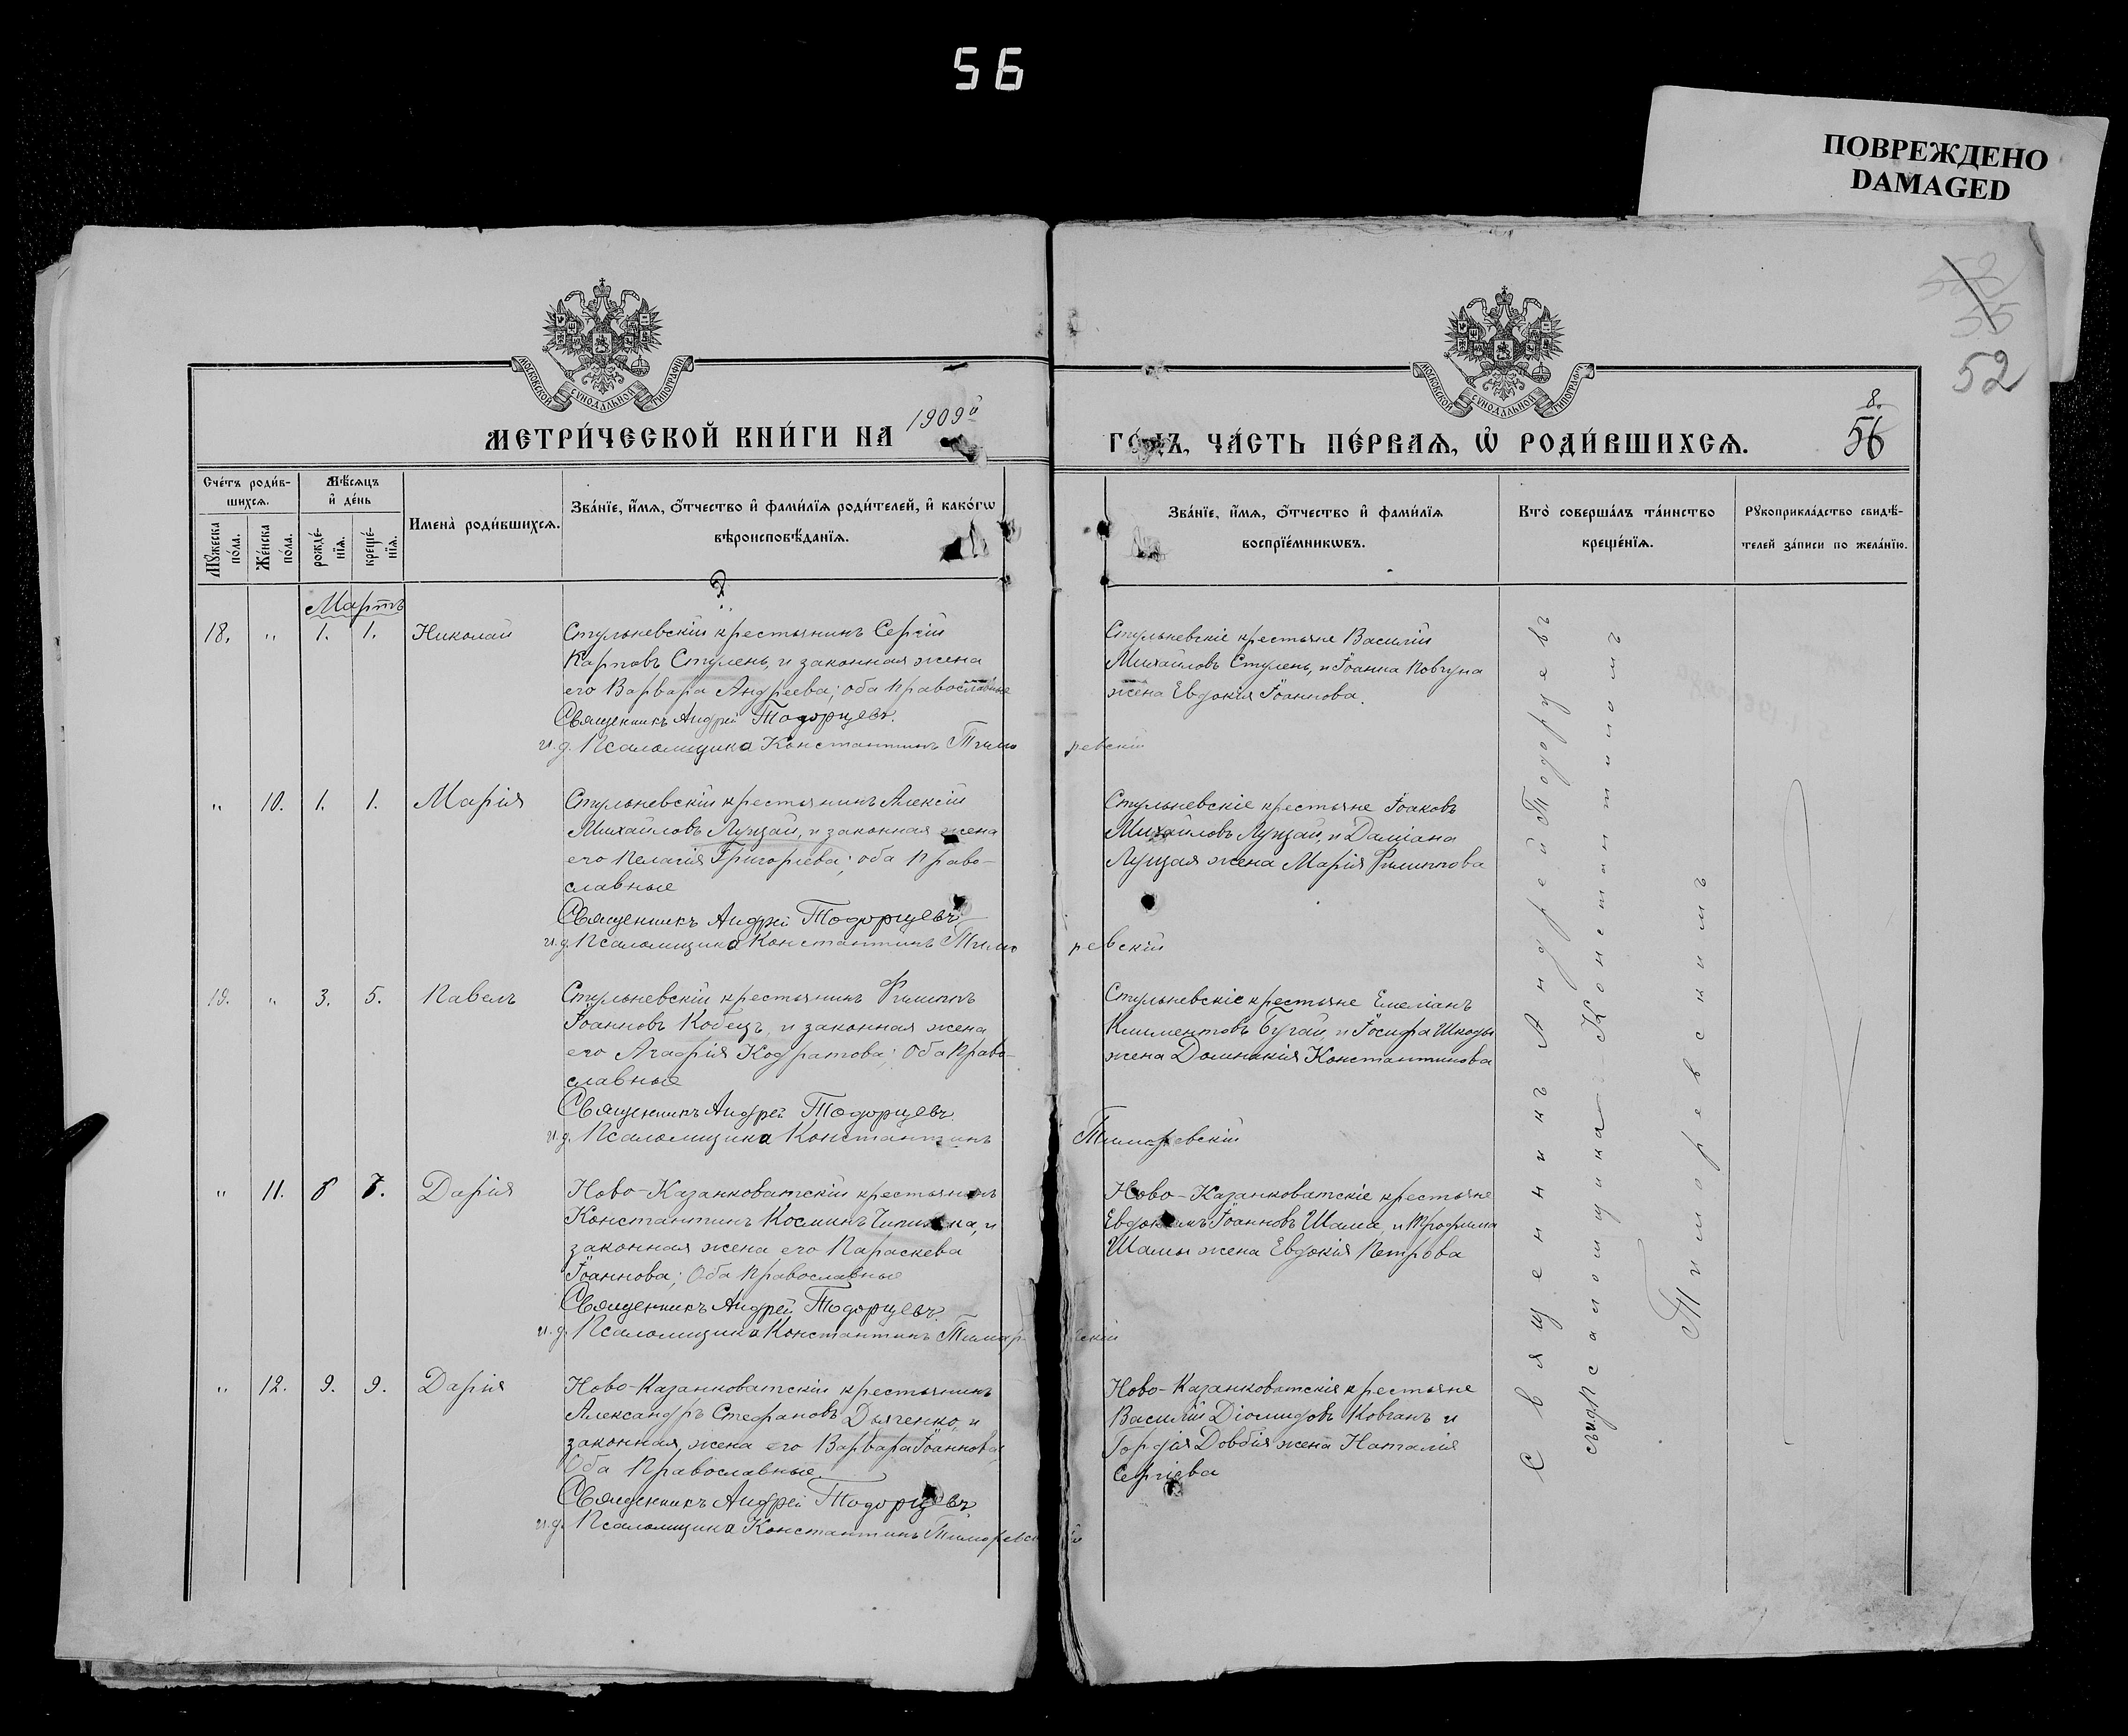 56
ПОВРЕЖДЕНО
DAMAGED
52
МОСКОВСКОЙ СѴНОДАЛЬНОЙ ТИПОГРАФІИ
МОСКОВСКОЙ СѴНОДАЛЬНОЙ ТИПОГРАФІИ
МЕТРИ́ЧЕСКОЙ КНИ́ГИ НА 1909й ГО́ДЪ, ЧА́СТЬ ПЕ́РВАѦ, Ѡ҆ РОДИ́ВШИХСѦ.
8.
56
Сче́тъ роди́в-
шихсѧ.
Мꙋжеска по́ла.
Же́нска по́ла.
Мѣ́сѧцъ
и҆ де́нь
рожде́-
нїѧ.
креще́-
нїѧ.
Имена̀ роди́вшихсѧ.
Зва́нїе, и҆́мѧ, ѻ҆́тчество и҆ фами́лїѧ роди́телей, и҆ како́гѡ
вѣроисповѣ́данїѧ.
Зва́нїе, и҆́мѧ, ѻ҆́тчество и҆ фами́лїѧ
воспрїе́мникѡвъ.
Кто̀ соверша́лъ та́инство
креще́нїѧ.
Рꙋкоприкла́дство свидѣ́-
телей за́писи по жела́нїю.
Мартъ
18. " 1. 1. Николай
Стульневскій крестьянинъ Сергій
Карповъ Стулень, и законная жена
его Варвара Андреева; оба православные
Священникъ Андрей Тодорцевъ.
и. д. Псаломщика Константинъ Тиморевскій
Стульневскіе крестьяне Василій
Михайловъ Стулень, и Іоанна Ковчуна
жена Евдокія Іоаннова.
" 10. 1. 1. Марія
Стульневскій крестьянинъ Алексій
Михайловъ Лунгай, и законная жена
его Пелагія Григоріева; оба право-
славные
Священникъ Андрей Тодорцевъ
и. д. Псаломщика Константинъ Тиморевскій
Стульневскіе крестьяне Іоаковъ
Михайловъ Лунгай, и Даміана
Лунгая жена Марія Филиппова
19. " 3. 5. Павелъ
Стульневскій крестьянинъ Филиппъ
Іоанновъ Кобецъ, и законная жена
его Агафія Кодратова; Оба право-
славные
Священникъ Андрей Тодорцевъ
и. д. Псаломщика Константинъ Тиморевскій
Стульневскіе крестьяне Емеліанъ
Климентовъ Бугай, и Іосифа Шкоды
жена Домникія Константинова
" 11. 6 7. Дарія
Ново-Казанковатскій крестьянинъ
Константинъ Косминъ
законная жена его Параскева
Іоаннова; Оба православные
Священникъ Андрей Тодорцевъ
и. д. Псаломщика Константинъ
Ново-Казанковатскіе крестьяне
Іоанновъ Шама и Трофима
Шамы жена Евдокія Петрова
" 12. 9. 9. Дарія
Ново-Казанковатскій крестьянинъ
Александръ Стефановъ Дьяченко, и
законная жена его Варвара Іоаннова
Оба православные.
Священникъ Андрей Тодорцевъ
и. д. Псаломщика Константинъ Тиморевскій
Ново-Казанковатскія крестьяне
Василій Діомидовъ Ковганъ и
Гордія Довбія жена Наталія
Сергіева
Священникъ Андрей Тодорцевъ
съ и. д. Псаломщика Константиномъ
Тиморевскимъ